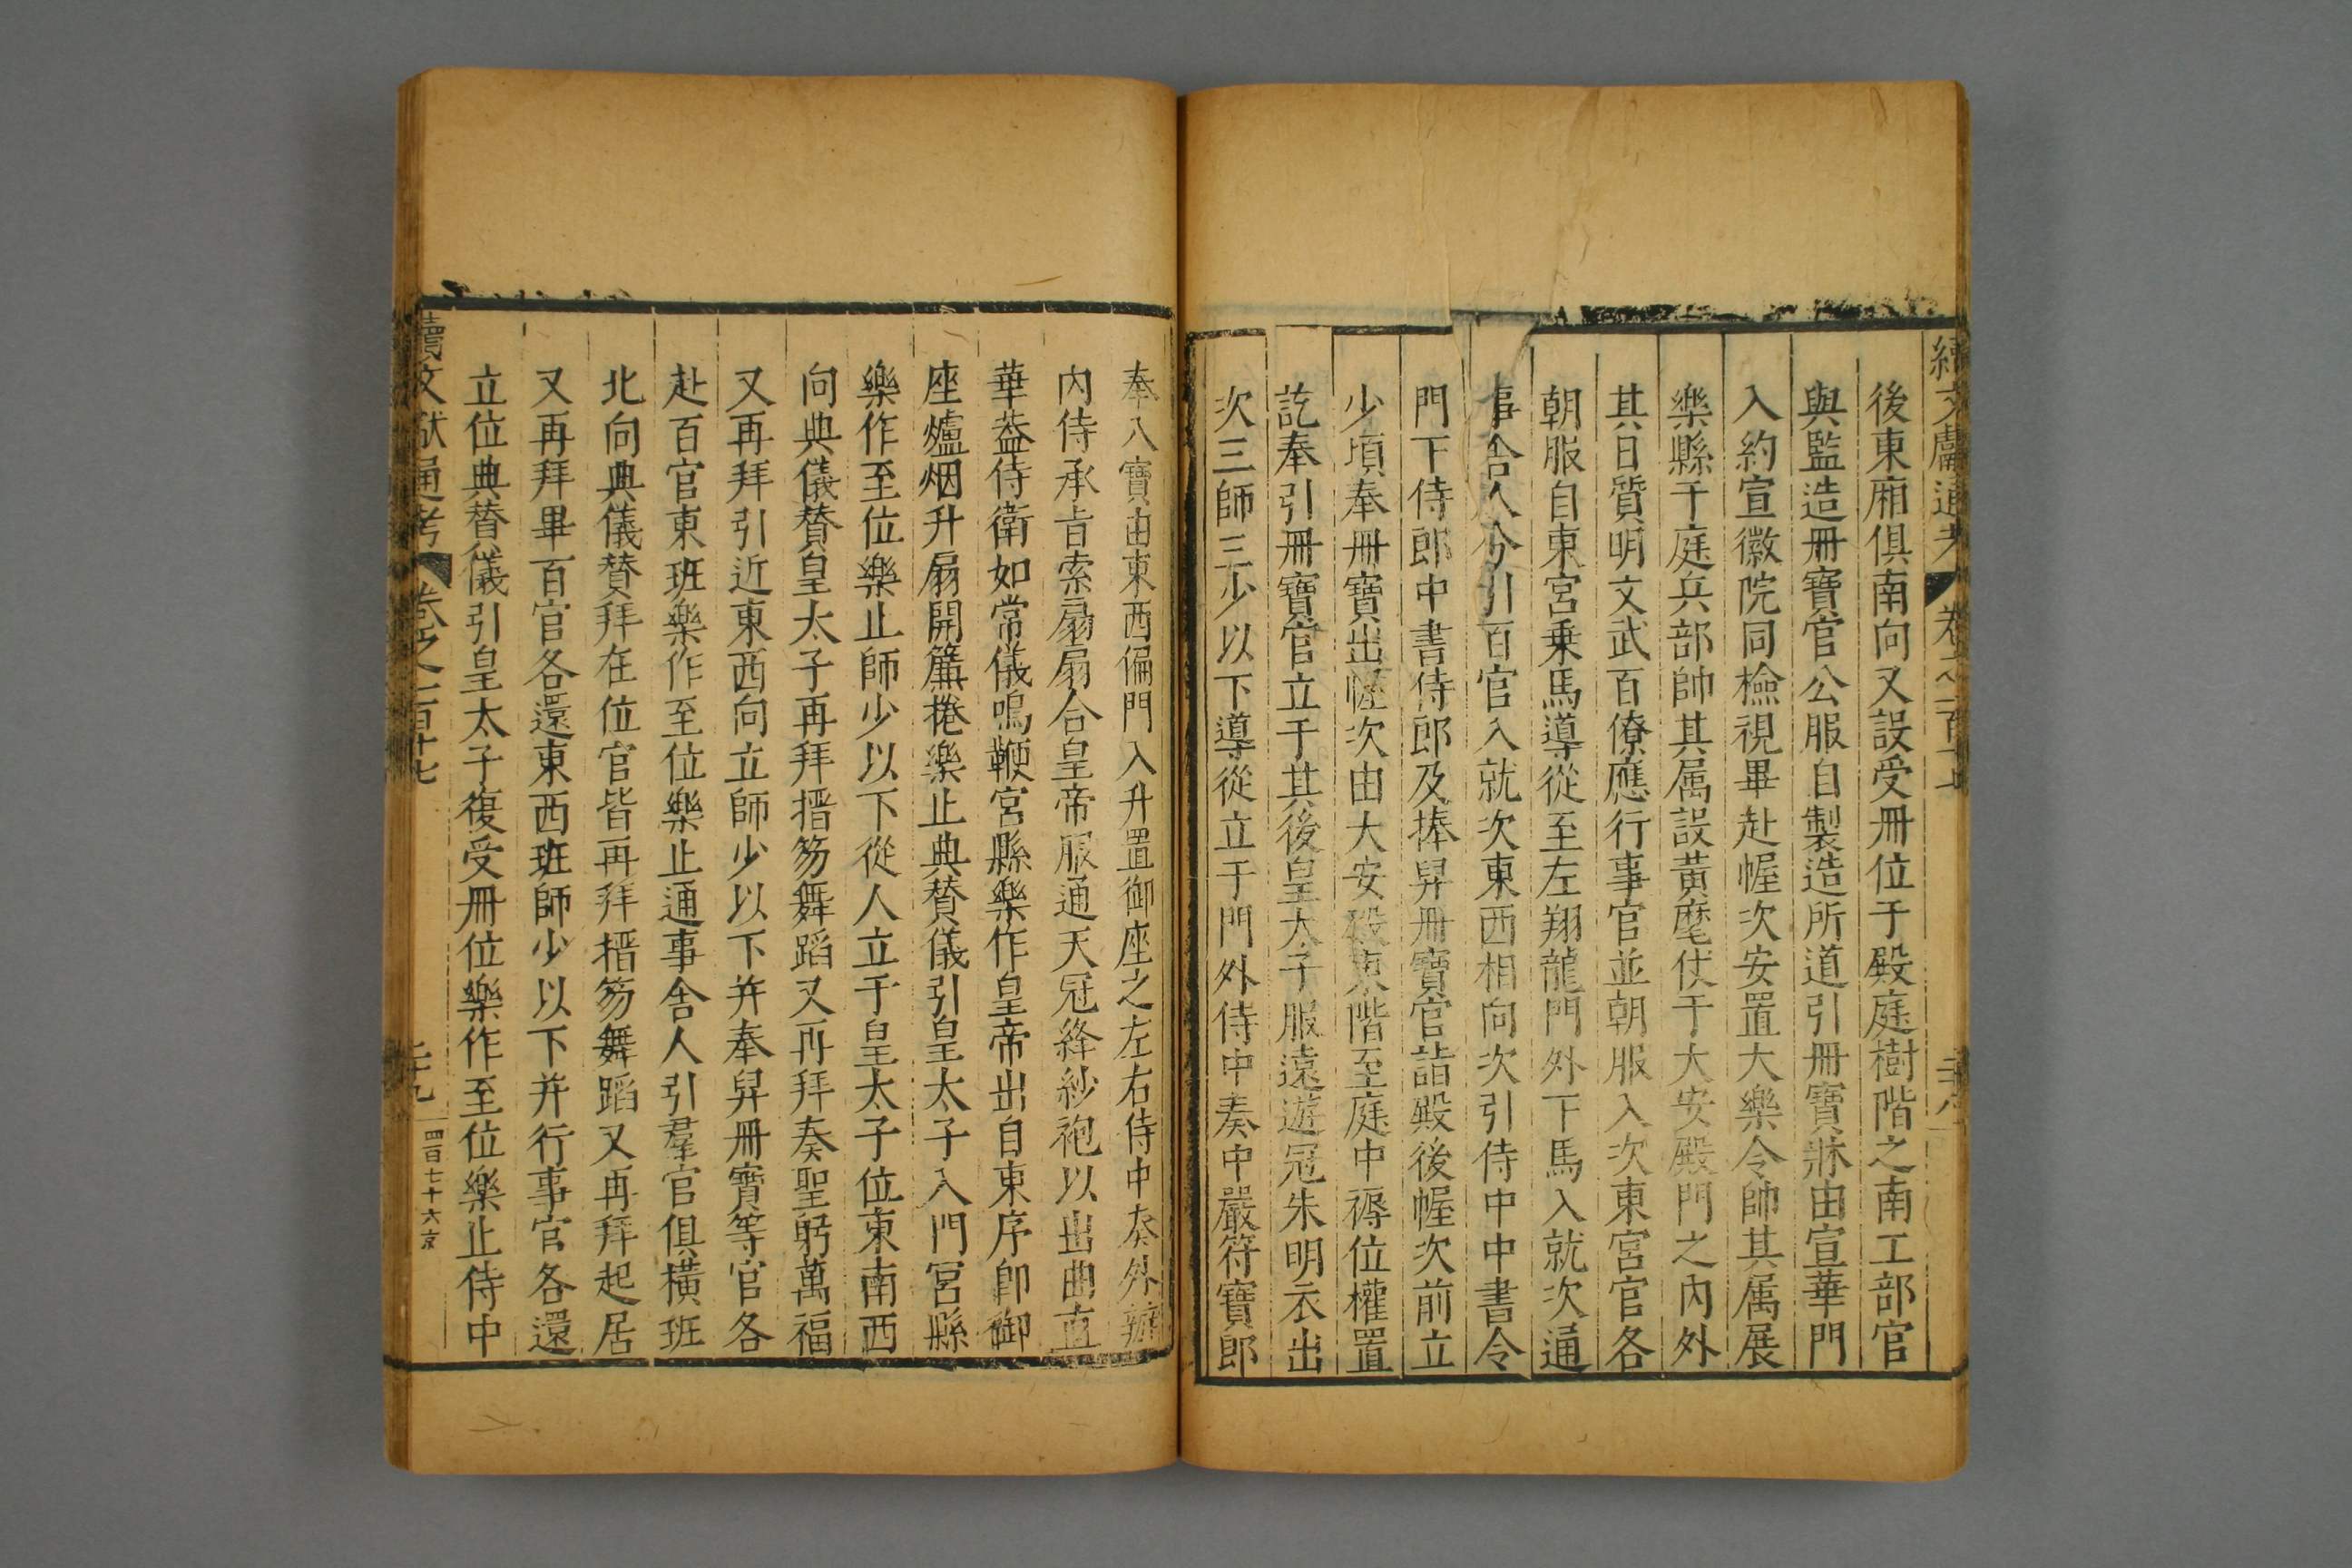 續文獻通考 卷之一百十七 二十八
後東廂俱南向又設受冊位于殿庭樹階之南工部官
與監造冊寶官公服自製造所道引冊寶牀由宣華門
入約宣徽院同檢視畢赴幄次安置大樂令帥其属展
樂縣于庭兵部帥其属設黃麾仗于大安殿門之內外
其日質明文武百僚應行事官並朝服入次東宮官各
朝服自東宮乗馬導從至左翔龍門外下馬入就次通
事舍人分引百官入就次東西相向次引侍中中書令
門下侍郎中書侍郎及捧舁冊寶官詣殿後幄次前立
少頃奉冊寶出幄次由大安殿東階至庭中褥位權置
訖奉引冊寶官立于其後皇太子服遠遊冠朱明衣出
次三師三少以下導從立于門外侍中奏中嚴符寶郎
奉八寶由東西偏門入升置御座之左右侍中奏外辦
內侍承旨索扇扇合皇帝服通天冠絳紗袍以出曲直
華蓋侍衛如常儀鳴鞭宮縣樂作皇帝出自東序卽御
座爐烟升扇開簾捲樂止典贊儀引皇太子入門宮縣
樂作至位樂止師少以下從人立于皇太子位東南西
向典儀贊皇太子再拜搢笏舞蹈又再拜奏聖躬萬福
又再拜引近東西向立師少以下并奉舁冊寶等官各
赴百官東班樂作至位樂止通事舍人引羣官俱橫班
北向典儀贊拜在位官皆再拜搢笏舞蹈又再拜起居
又再拜畢百官各還東西班師少以下并行事官各還
立位典替儀引皇太子復受冊位樂作至位樂止侍中
續文獻通考 卷之一百十七 二十九 四百七十六